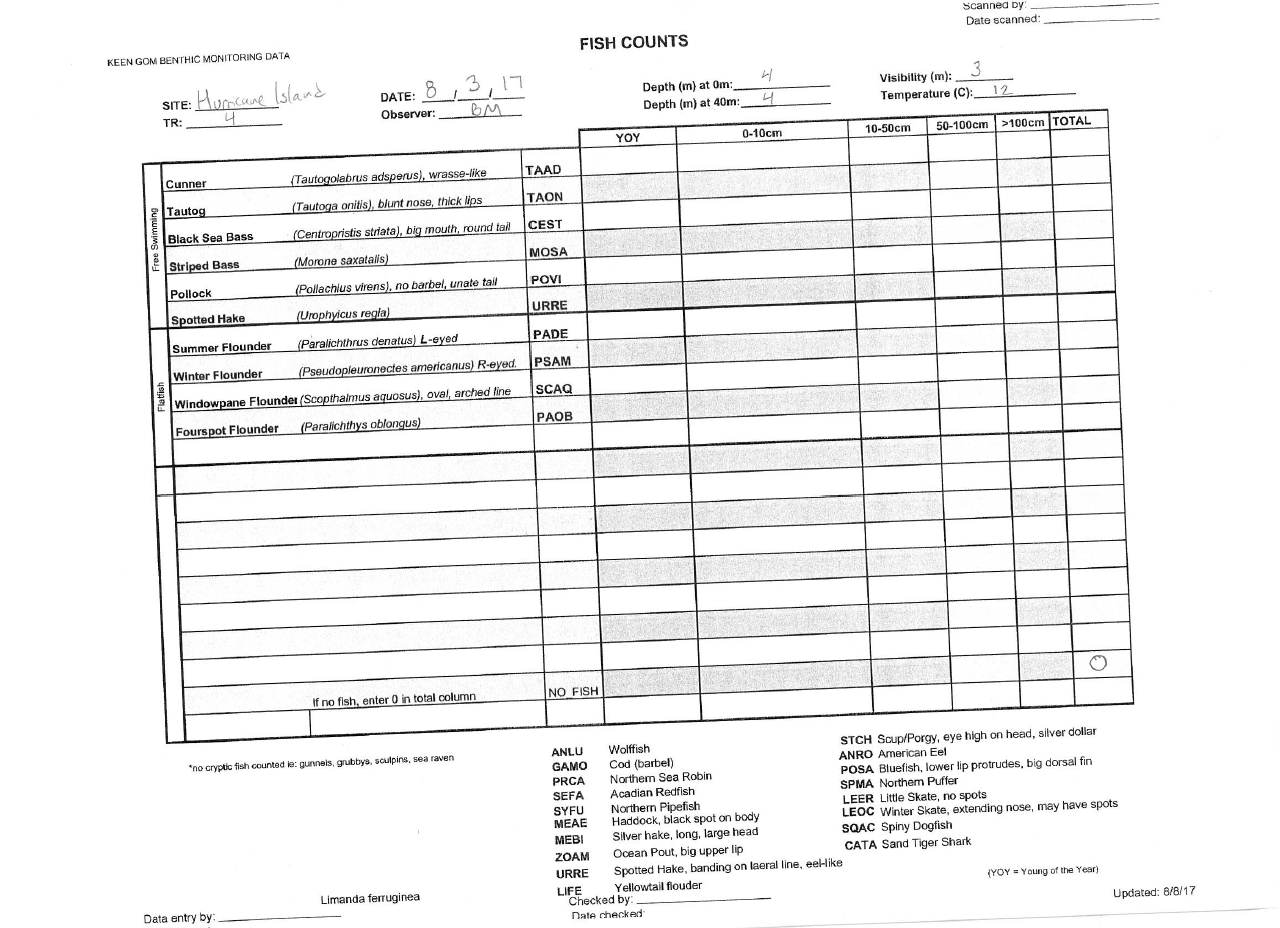 Scanned by:
Date scanned:
FISH COUNTS
KEEN GOM BENTHIC MONITORING DATA
SITE: Hurricane Island DATE: 8 / 3 / 17 Depth (m) at 0m: 4 Visibility (m): 3
TR: 4 Observer: BM Depth (m) at 40m: 4 Temperature (C): 12
YOY 0-10cm 10-50cm 50-100cm >100cm TOTAL
Free Swimming
Cunner (Tautogolabrus adsperus), wrasse-like TAAD
Tautog (Tautoga onitis), blunt nose, thick lips TAON
Black Sea Bass (Centropristis striata), big mouth, round tail CEST
Striped Bass (Morone saxatalis) MOSA
Pollock (Pollachius virens), no barbel, unate tail POVI
Spotted Hake (Urophyicus regla) URRE
Flatfish
Summer Flounder (Paralichthrus denatus) L-eyed PADE
Winter Flounder (Pseudopleuronectes americanus) R-eyed. PSAM
Windowpane Flounder (Scopthalmus aquosus), oval, arched line SCAQ
Fourspot Flounder (Paralichthys oblongus) PAOB
If no fish, enter 0 in total column NO_FISH 0
*no cryptic fish counted ie: gunnels, grubbys, sculpins, sea raven
ANLU Wolffish
GAMO Cod (barbel)
PRCA Northern Sea Robin
SEFA Acadian Redfish
SYFU Northern Pipefish
MEAE Haddock, black spot on body
MEBI Silver hake, long, large head
ZOAM Ocean Pout, big upper lip
URRE Spotted Hake, banding on laeral line, eel-like
LIFE Yellowtail flouder
STCH Scup/Porgy, eye high on head, silver dollar
ANRO American Eel
POSA Bluefish, lower lip protrudes, big dorsal fin
SPMA Northern Puffer
LEER Little Skate, no spots
LEOC Winter Skate, extending nose, may have spots
SQAC Spiny Dogfish
CATA Sand Tiger Shark
(YOY = Young of the Year)
Limanda ferruginea
Updated: 8/8/17
Data entry by:
Checked by:
Date checked: